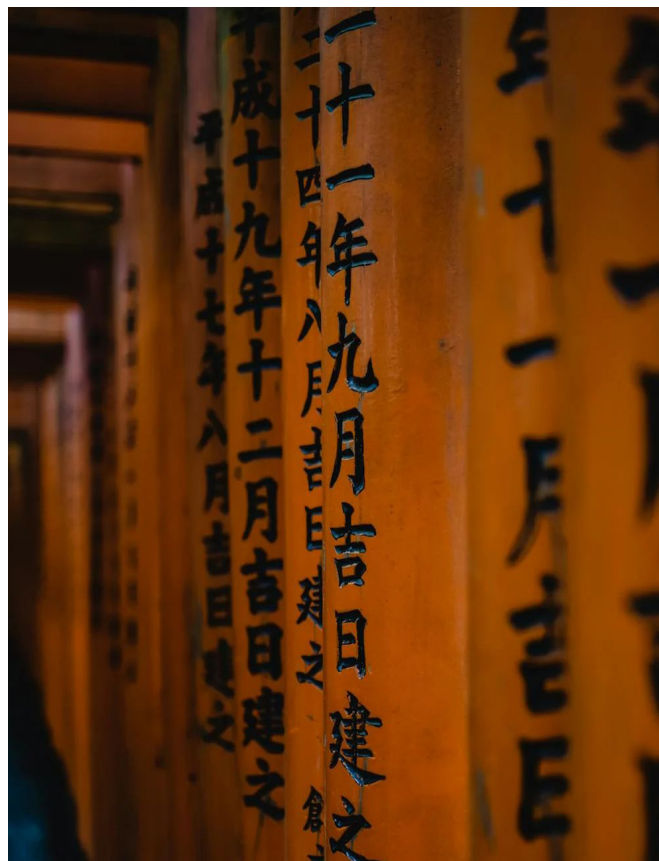 年十一月吉日
二十一年九月吉日建之
二十四年八月吉日建之 創
平成十九年十二月吉日建之
平成十七年八月吉日建之